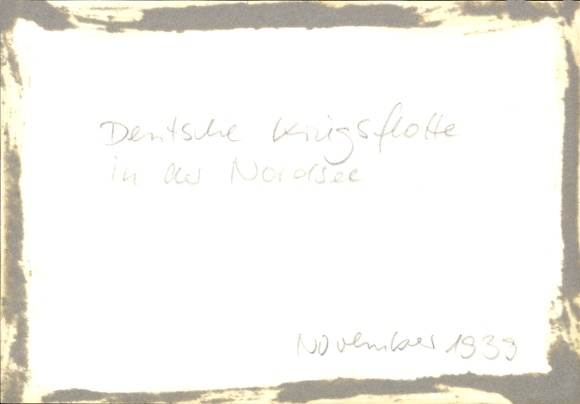 Deutsche Kriegsflotte
in der Nordsee
November 1939